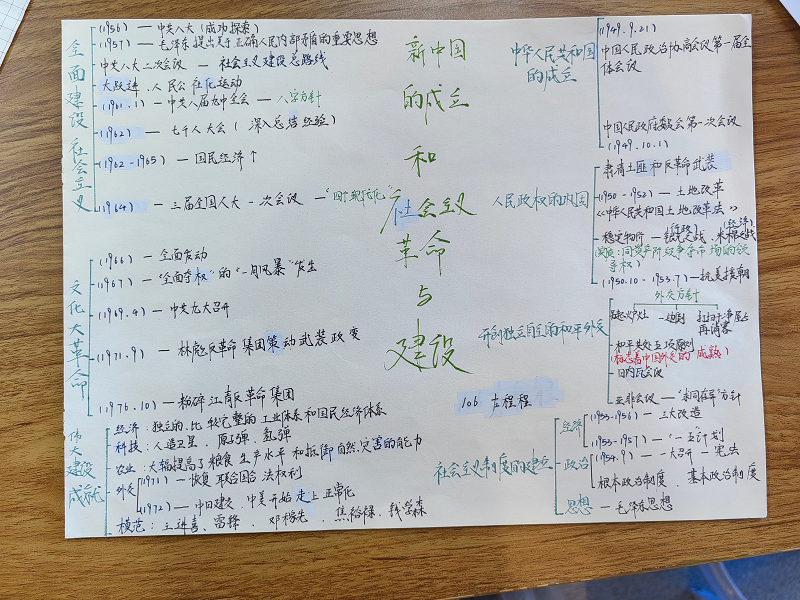 新中国
的成立
和
社会主义
革命
与
建设
106 左程程
全面建设社会主义
(1956) — 中共八大 (成功探索)
(1957) — 毛泽东提出关于正确人民内部矛盾的重要思想
中共八大二次会议 — 社会主义建设总路线
大跃进、人民公社化运动
(1961.1) — 中共八届九中全会 — 八字方针
(1962) — 七千人大会 ( 深入总结经验)
(1962-1965) — 国民经济↑
(1964) — 三届全国人大一次会议 — "四个现代化"
文化大革命
(1966) — 全面发动
(1967) — "全面夺权"的"一月风暴"发生
(1969.4) — 中共九大召开
(1971.9) — 林彪反革命集团策动武装政变
(1976.10) — 粉碎江青反革命集团
伟大建设成就
经济: 独立的、比较完整的工业体系和国民经济体系
科技: 人造卫星、原子弹、氢弹
农业: 大幅提高了粮食生产水平和抵御自然灾害的能力
外交
(1971) — 恢复联合国合法权利
(1972) — 中日建交、中美开始走上正常化
模范: 王进喜、雷锋、邓稼先、焦裕禄、钱学森
中华人民共和国的成立
(1949.9.21)
中国人民政治协商会议第一届全
体会议
中国人民政府委员会第一次会议
(1949.10.1)
人民政权的巩固
肃清土匪和反革命武装
(1950-1952) — 土地改革
《中华人民共和国土地改革法》
(经济)
稳定物价 — 银元之战、米棉之战
争夺市场的领
导权)
(1950.10-1953.7) — 抗美援朝
开创独立自主的和平外交
外交方针
一边倒
打扫干净屋子
再请客
和平共处五项原则
(标志着中国外交的成熟)
日内瓦会议
亚非会议 — "求同存异"方针
社会主义制度的建立
经济
(1953-1956) — 三大改造
(1953-1957) — "一五"计划
政治
(1954.9) — 一大召开 — 宪法
根本政治制度、基本政治制度
思想 — 毛泽东思想